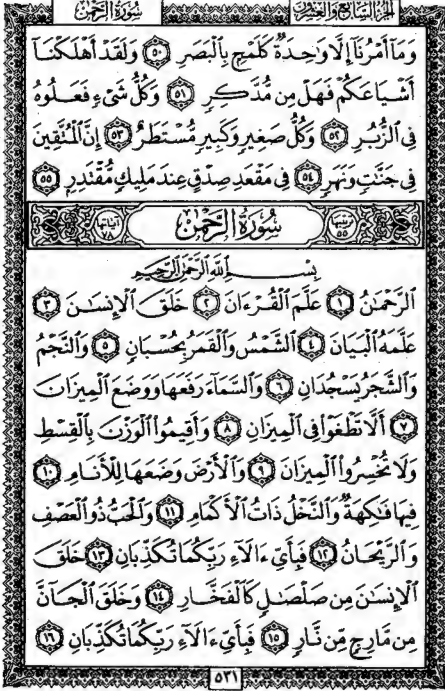 الجزء السابع والعشرون سورة الرحمن
وَمَآ أَمْرُنَآ إِلَّا وَٰحِدَةٌ كَلَمْحٍۭ بِٱلْبَصَرِ ٥٠ وَلَقَدْ أَهْلَكْنَآ
أَشْيَاعَكُمْ فَهَلْ مِن مُّدَّكِرٍ ٥١ وَكُلُّ شَىْءٍ فَعَلُوهُ
فِى ٱلزُّبُرِ ٥٢ وَكُلُّ صَغِيرٍ وَكَبِيرٍ مُّسْتَطَرٌ ٥٣ إِنَّ ٱلْمُتَّقِينَ
فِى جَنَّٰتٍ وَنَهَرٍ ٥٤ فِى مَقْعَدِ صِدْقٍ عِندَ مَلِيكٍ مُّقْتَدِرٍۭ ٥٥
ترتيبها ٥٥ سورة الرحمن آياتها ٧٨
بِسْمِ ٱللَّهِ ٱلرَّحْمَٰنِ ٱلرَّحِيمِ
ٱلرَّحْمَٰنُ ١ عَلَّمَ ٱلْقُرْءَانَ ٢ خَلَقَ ٱلْإِنسَٰنَ ٣
عَلَّمَهُ ٱلْبَيَانَ ٤ ٱلشَّمْسُ وَٱلْقَمَرُ بِحُسْبَانٍ ٥ وَٱلنَّجْمُ
وَٱلشَّجَرُ يَسْجُدَانِ ٦ وَٱلسَّمَآءَ رَفَعَهَا وَوَضَعَ ٱلْمِيزَانَ
٧ أَلَّا تَطْغَوْا۟ فِى ٱلْمِيزَانِ ٨ وَأَقِيمُوا۟ ٱلْوَزْنَ بِٱلْقِسْطِ
وَلَا تُخْسِرُوا۟ ٱلْمِيزَانَ ٩ وَٱلْأَرْضَ وَضَعَهَا لِلْأَنَامِ ١٠
فِيهَا فَٰكِهَةٌ وَٱلنَّخْلُ ذَاتُ ٱلْأَكْمَامِ ١١ وَٱلْحَبُّ ذُو ٱلْعَصْفِ
وَٱلرَّيْحَانُ ١٢ فَبِأَىِّ ءَالَآءِ رَبِّكُمَا تُكَذِّبَانِ ١٣ خَلَقَ
ٱلْإِنسَٰنَ مِن صَلْصَٰلٍ كَٱلْفَخَّارِ ١٤ وَخَلَقَ ٱلْجَآنَّ
مِن مَّارِجٍ مِّن نَّارٍ ١٥ فَبِأَىِّ ءَالَآءِ رَبِّكُمَا تُكَذِّبَانِ ١٦
٥٣١